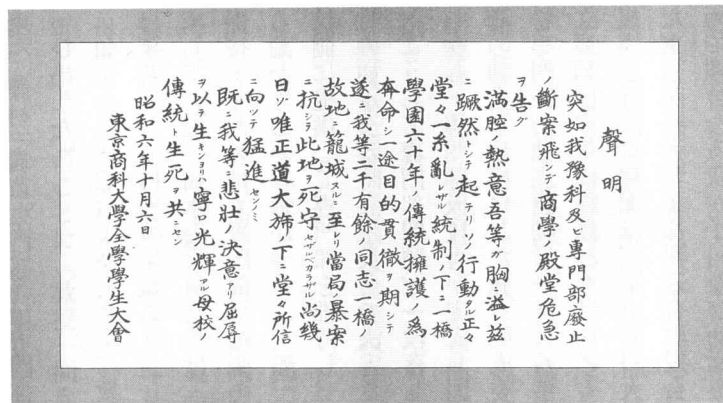 聲明
突如我豫科及ビ專門部廢止
ノ斷案飛ンデ商學ノ殿堂危急
ヲ告グ
滿腔ノ熱意吾等ガ胸ニ溢レ茲
ニ蹶然トシテ起テリソノ行動タル正々
堂々一糸亂レザル統制ノ下ニ一橋
學園六十年ノ傳統擁護ノ爲
奔命シ一途目的貫徹ヲ期シテ
遂ニ我等二千有餘ノ同志一橋ノ
故地ニ籠城スルニ至レリ當局ノ暴案
ニ抗シテ此地ヲ死守セザルベカラザル尚幾
日ゾ唯正道大旆ノ下ニ堂々所信
ニ向ツテ猛進センノミ
既ニ我等ニ悲壯ノ決意アリ屈辱
ヲ以テ生キンヨリハ寧ロ光輝アル母校ノ
傳統ト生死ヲ共ニセン
昭和六年十月六日
東京商科大學全學學生大會